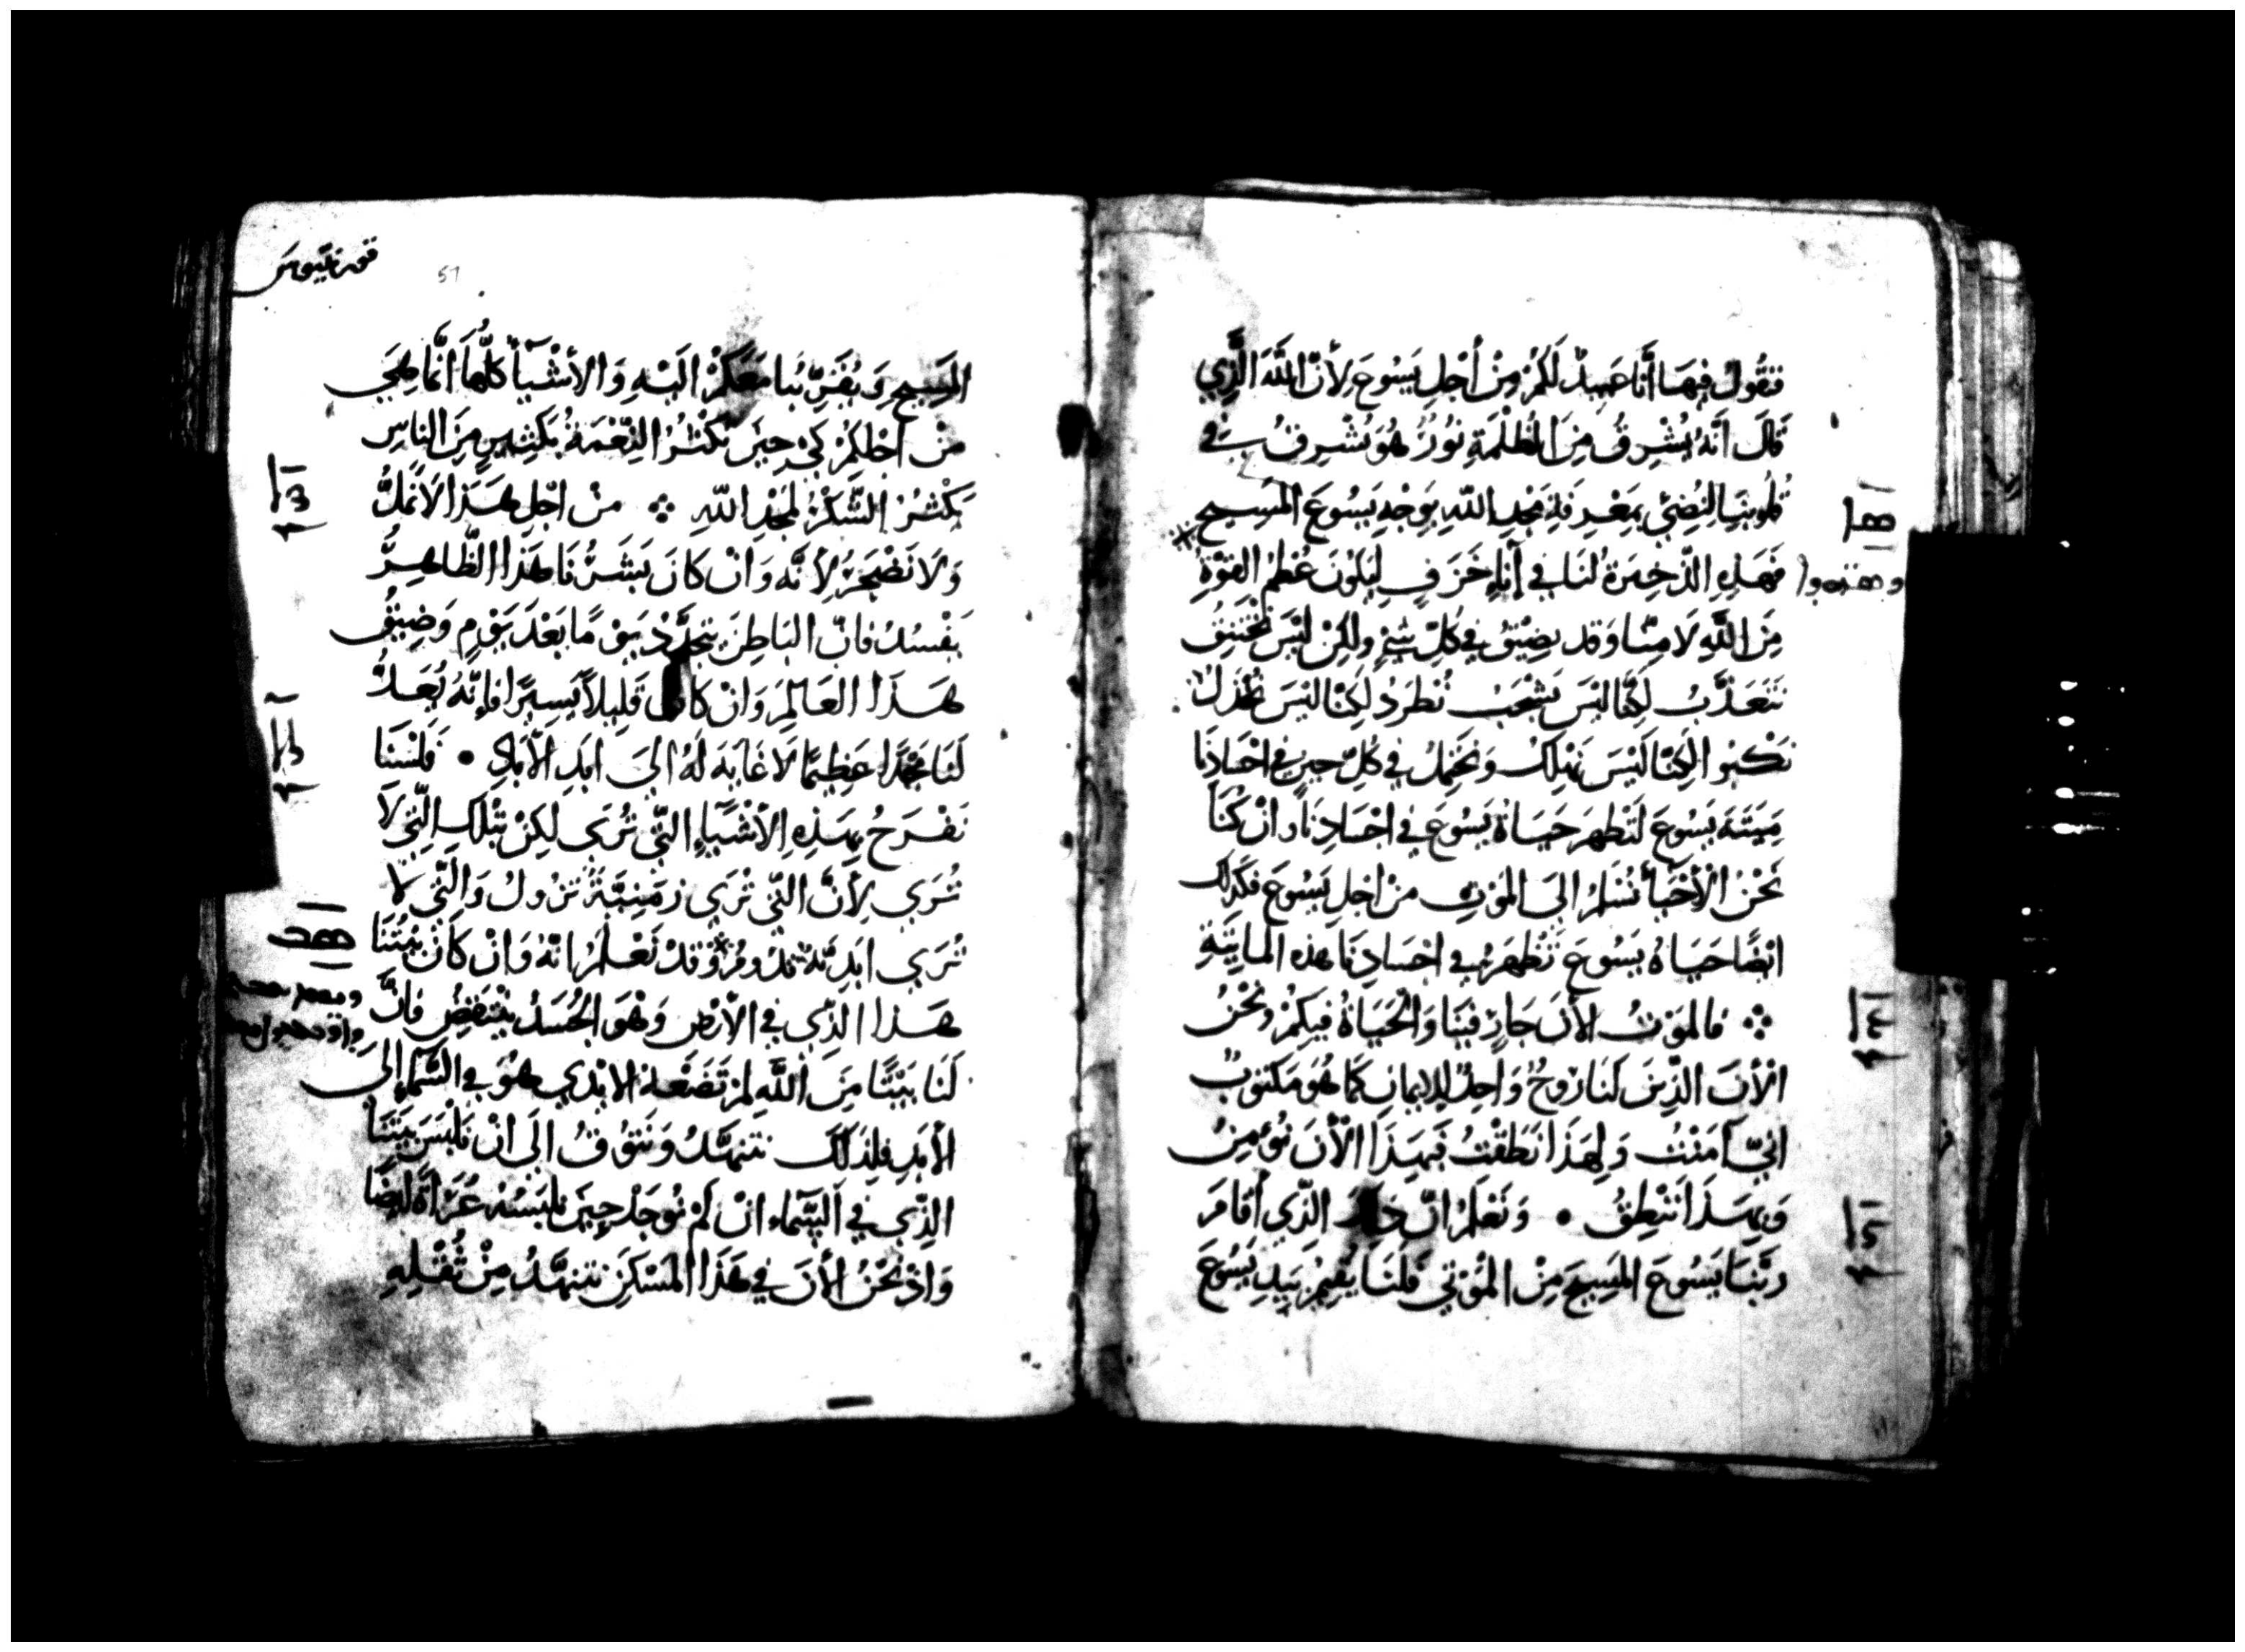 فنقول فيها أنا عبيد لكم من أجل يسوع لأن الله الذي
قال انه يشرق من الظلمة نور هو يشرق في
قلوبنا لنضئ بمعرفة مجد الله بوجه يسوع المسيح
فهذه الذخيرة لنا في آناء خزف ليكون عظم القوة
من الله لا منا وقد يضيق في كل شئ ولكن ليس نختنق
نتعذب لكنا ليس نشجب نطرد لكنا ليس نخذل
نكبوا لكنا ليس نهلك ونحتمل في كل حين في اجسادنا
ميتة يسوع لتظهر حياة يسوع في اجسادنا وان كنا
نحن الأحياء نسلم الى الموت من اجل يسوع فكذلك
ايضا حياة يسوع تظهر في اجسادنا هذه المايتة
فالموت الأن جار فينا والحياة فيكم ونحن
الأن الذين لنا روح واحد للايمان كما هو مكتوب
اني آمنت ولهذا نطقت فبهذا الأن نؤمن
وبهذا ننطق • ونعلم ان ذلك الذي أقام
ربنا يسوع المسيح من الموتي فلنا يقيم بيد يسوع
قورنتيوس
51
المسيح ويقربنا معكم اليه والأشياء كلها انما هي
من اجلكم كي حين تكثر النعمة بكثيرين من الناس
يكثر الشكر لمجد الله من اجل هذا لا نمل
ولا نضجر لأنه وان كان بشرنا هذا الظاهر
يفسد فان الباطن يتجدد يوما بعد يوم وضيق
هذا العالم وان كان قليلا يسيرا فإنه يعد
لنا مجدا عظيما لا غاية له الي ابد الأباد • فلسنا
نفرح بهذه الأشياء التي تري لكن بتلك التي لا
تري لأن التي تري زمنية تزول والتي لا
تري ابدية تدوم وقد نعلم انه وان كان بيتنا
هذا الذي في الأرض وهو الجسد ينتقض فان
لنا بيتا من الله لم تضعه الايدي هو في السماء إلى
الأبد فلذلك نتنهد ونتوق الى ان نلبس بيتنا
الذي في السماء ان لم نوجد حين نلبسه عراة ايضا
واذ نحن الأن في هذا المسكن نتنهد من ثقله